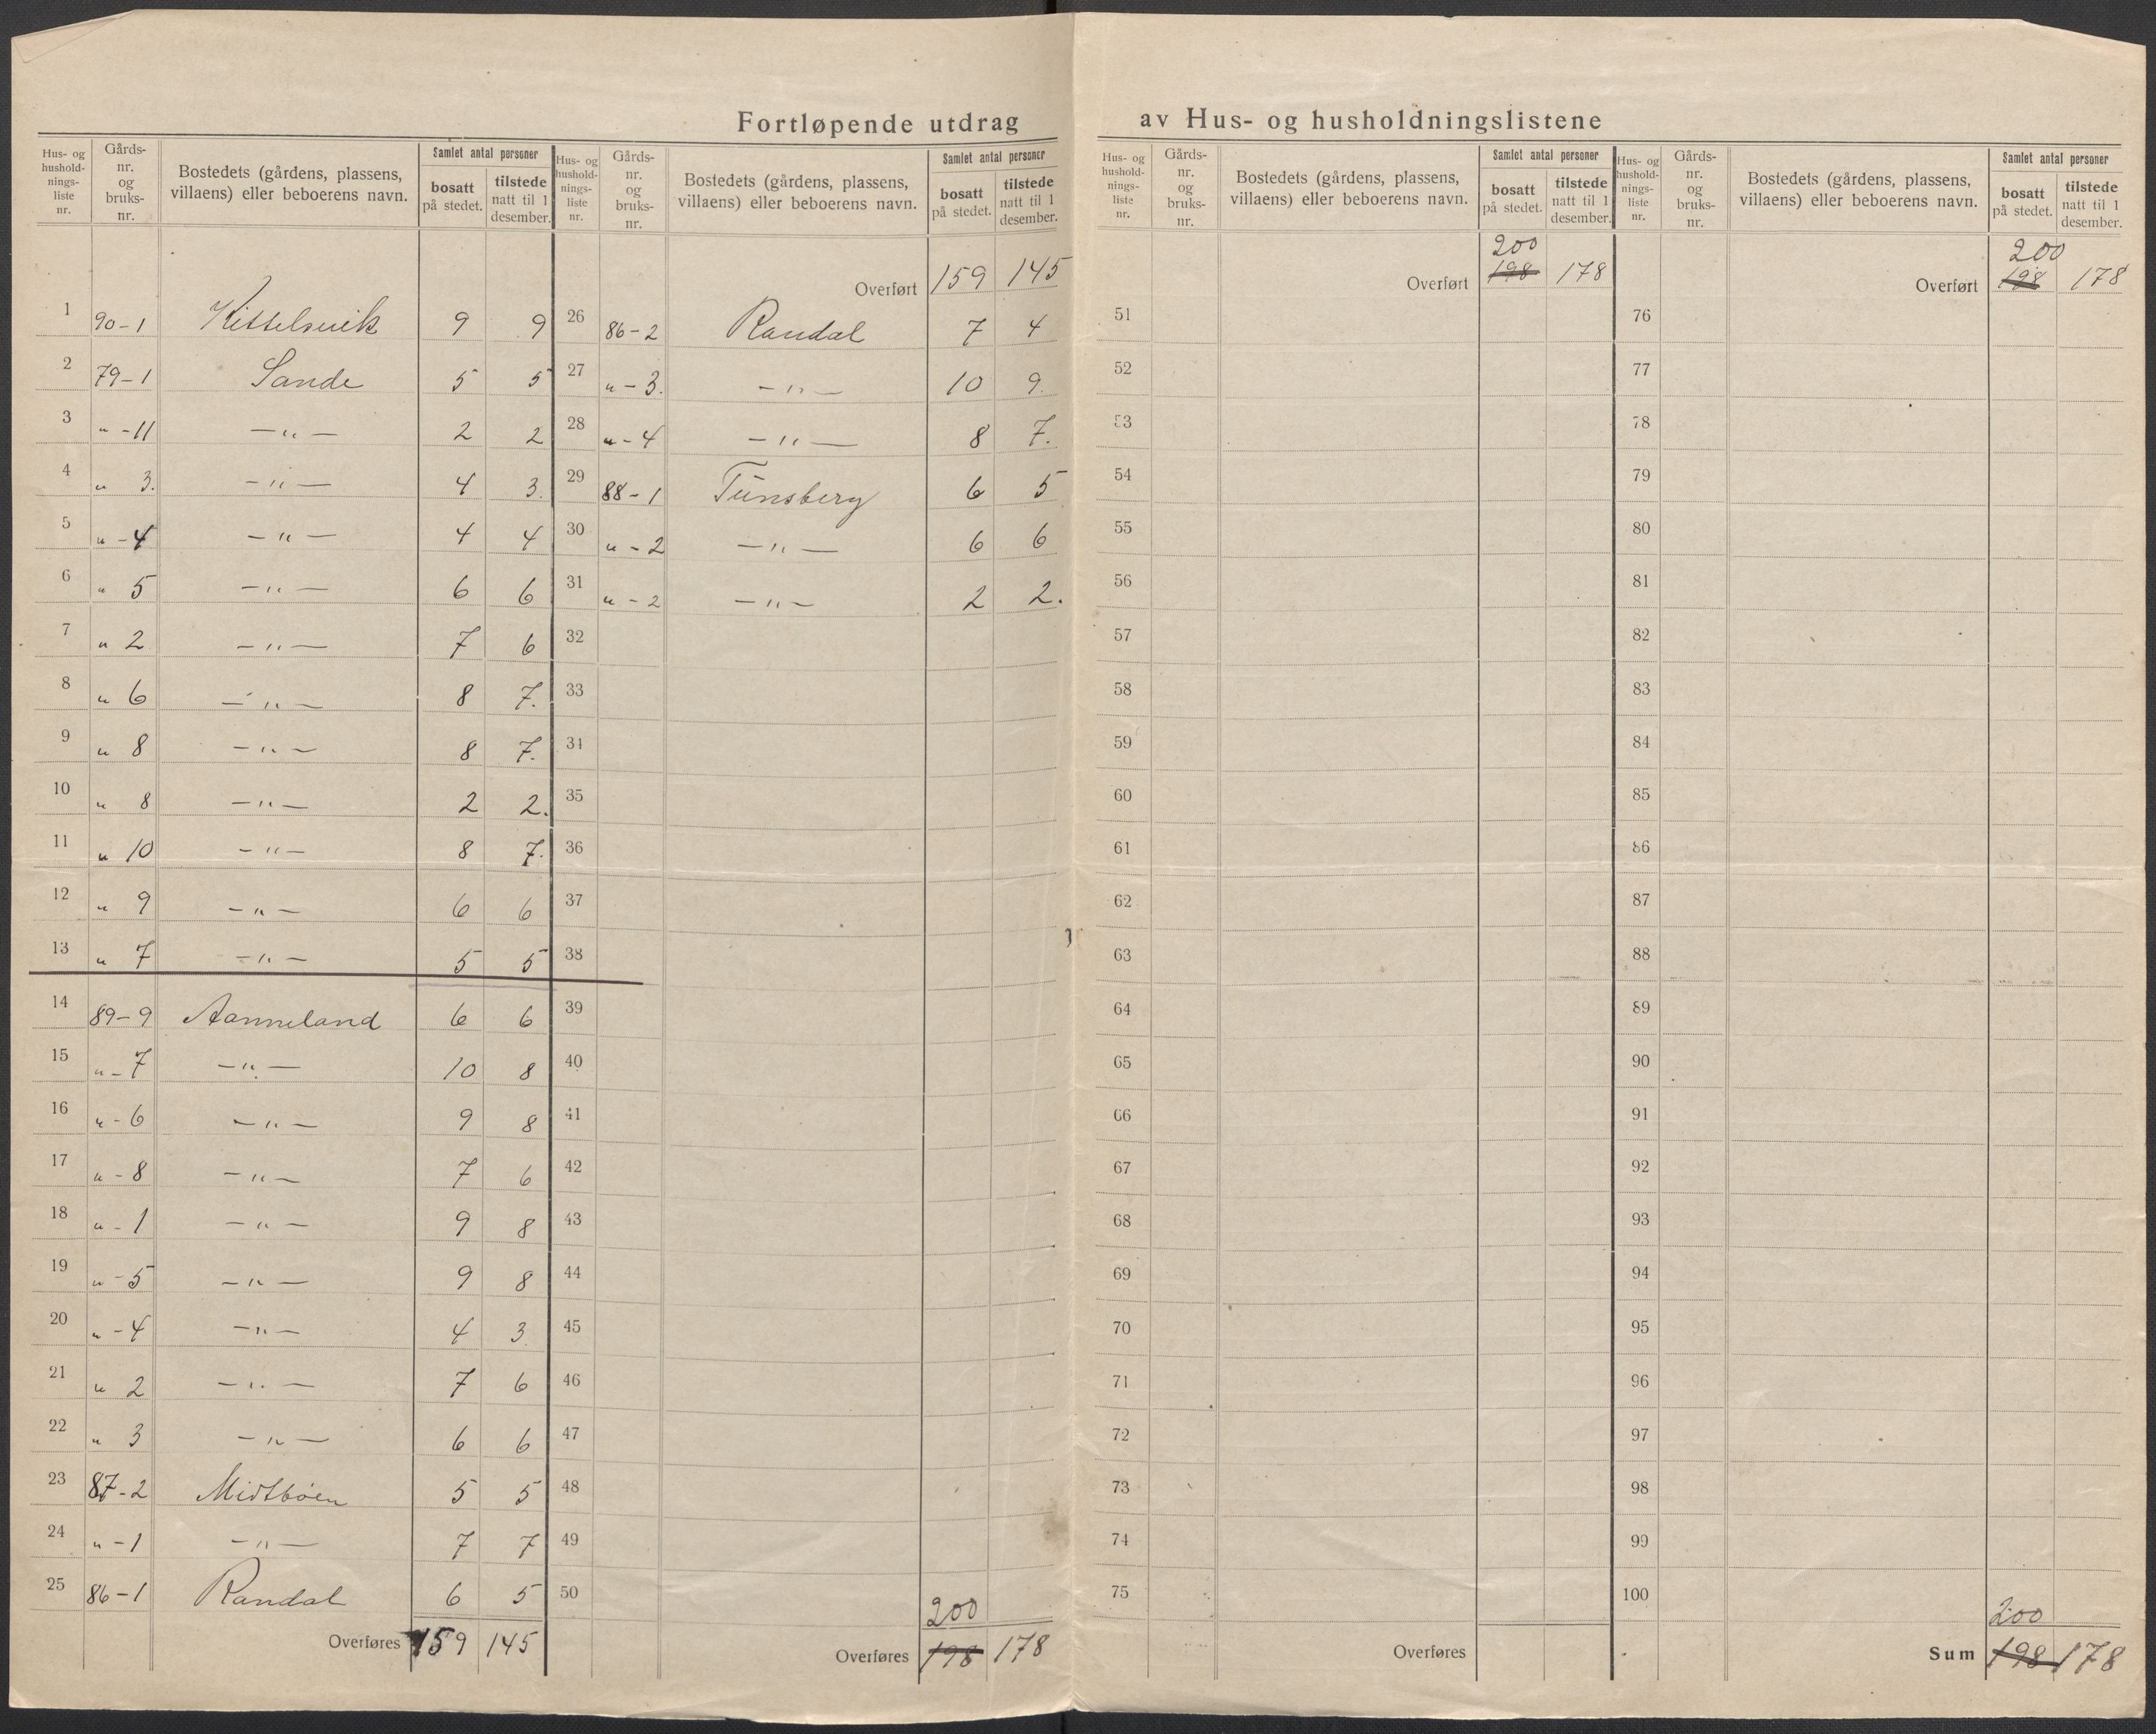 Fortløpende utdrag av Hus- og husholdningslistene
Hus- og hushold-nings-liste nr. Gårds-nr. og bruks-nr. Bostedets (gårdens, plassens, villaens) eller beboerens navn. Samlet antal personer bosatt på stedet. tilstede natt til 1 desember.
1 90-1 Kittelsvik 9 9
2 79-1 Sande 5 5
3 " -11 —"— 2 2
4 " 3. —"— 4 3.
5 " -4 —"— 4 4
6 " 5 —"— 6 6
7 " 2 —"— 7 6
8 " 6 —"— 8 7.
9 " 8 —"— 8 7.
10 " 8 —"— 2 2.
11 " 10 —"— 8 7.
12 " 9 —"— 6 6
13 " 7 —"— 5 5
14 89-9 Aanneland 6 6
15 " -7 —"— 10 8
16 " -6 —"— 9 8
17 " -8 —"— 7 6
18 " -1 —"— 9 8
19 " -5 —"— 9 8
20 " -4 —"— 4 3
21 " 2 —"— 7 6
22 " 3 —"— 6 6
23 87-2 Midtbøen 5 5
24 " -1 —"— 7 7
25 86-1 Randal 6 5
Overføres 159 145
Hus- og hushold-nings-liste nr. Gårds-nr. og bruks-nr. Bostedets (gårdens, plassens, villaens) eller beboerens navn. Samlet antal personer bosatt på stedet. tilstede natt til 1 desember.
Overført 159 145
26 86-2 Randal 7 4
27 " -3. —"— 10 9.
28 " -4 —"— 8 7.
29 88-1 Tunsberg 6 5
30 " -2 —"— 6 6
31 " -2 —"— 2 2.
32
33
34
35
36
37
38
39
40
41
42
43
44
45
46
47
48
49
50
200
Overføres 198 178
Hus- og hushold-nings-liste nr. Gårds-nr. og bruks-nr. Bostedets (gårdens, plassens, villaens) eller beboerens navn. Samlet antal personer bosatt på stedet. tilstede natt til 1 desember.
200
Overført 198 178
51
52
53
54
55
56
57
58
59
60
61
62
63
64
65
66
67
68
69
70
71
72
73
74
75
Overføres
Hus- og hushold-nings-liste nr. Gårds-nr. og bruks-nr. Bostedets (gårdens, plassens, villaens) eller beboerens navn. Samlet antal personer bosatt på stedet. tilstede natt til 1 desember.
200
Overført 198 178
76
77
78
79
80
81
82
83
84
85
86
87
88
89
90
91
92
93
94
95
96
97
98
99
100
200
Sum 198 178